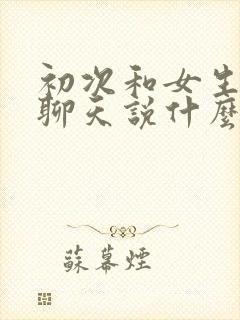 初次和女生
聊天説什麼
蘇幕煙